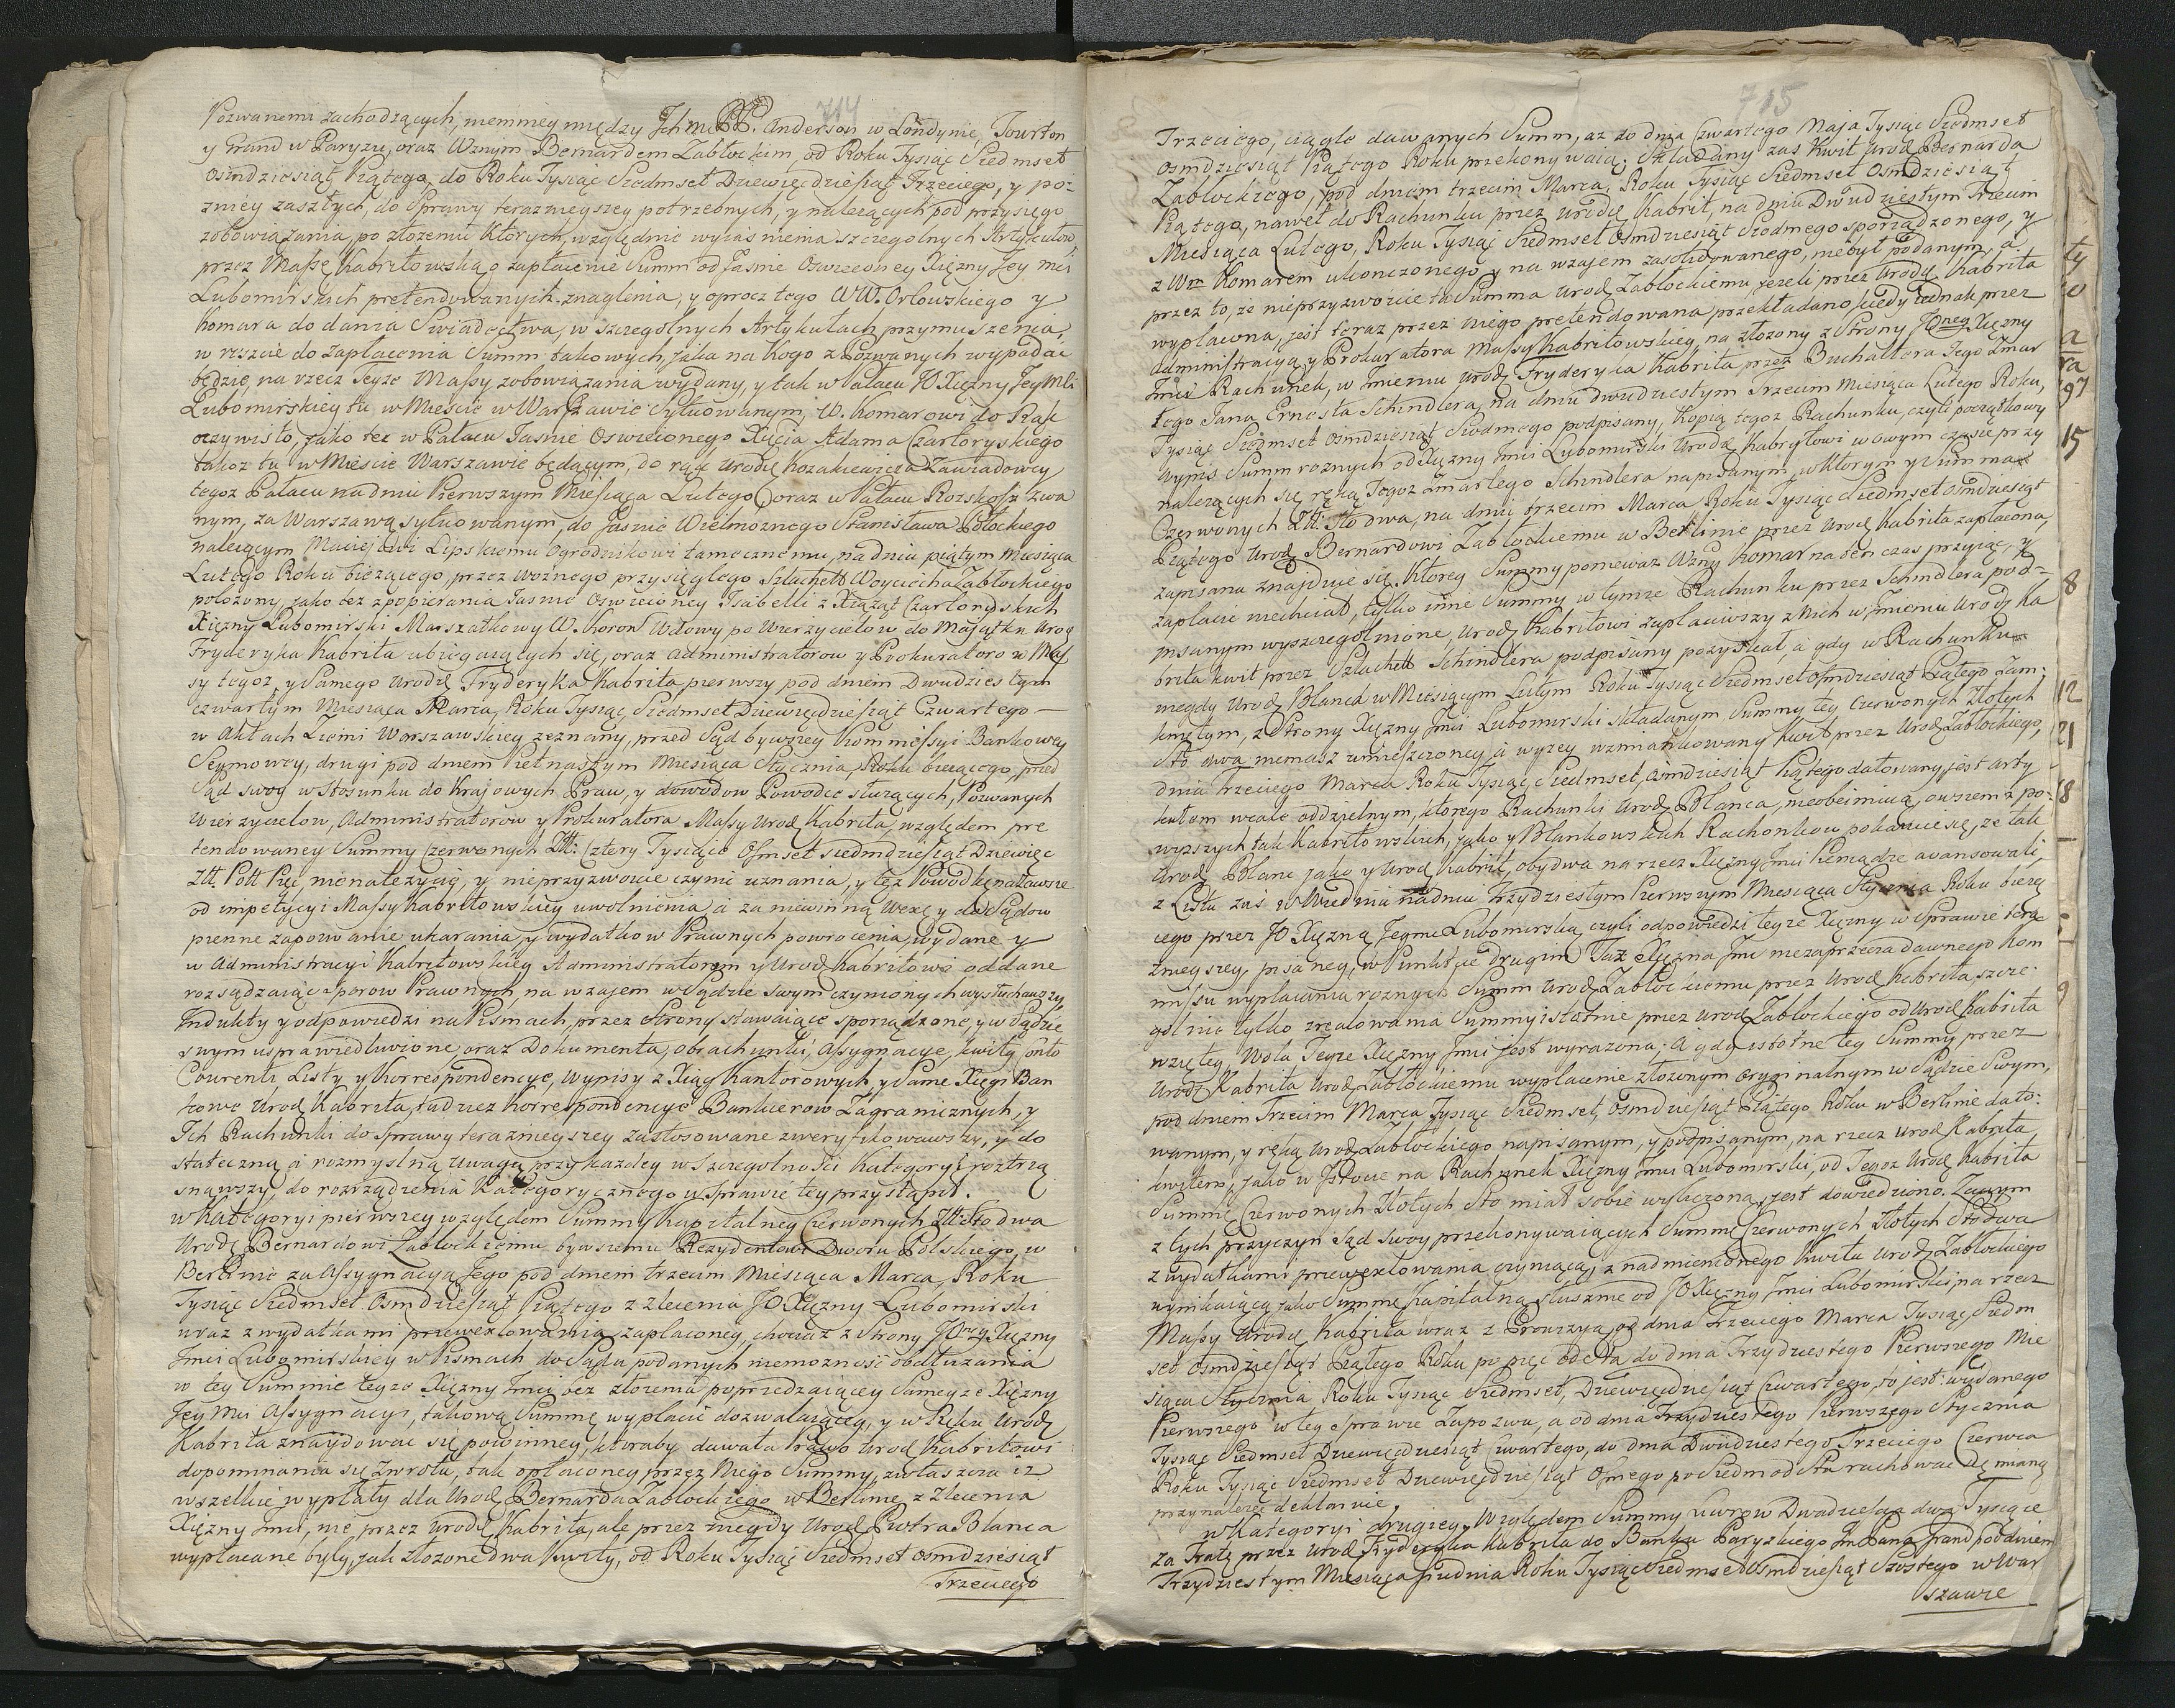 714
Pozwanemi zachodzących, niemniey między Ichmć PP. Anderson w Londynie, Tourton
y Grand w Paryzu, oraz Wznym Bernardem Zabłockim, od Roku Tysiąc Siedmset
Osmdziesiąt Piątego, do Roku Tysiąc Siedmset Dziewięćdziesiąt Trzeciego, y poz
zniey zaszłych, do Sprawy terazmeyszey potrzebnych, y nalezących pod przysięgą
zobowiązania, po złozeniu których, względnie wyiasnienia szczegolnych Artykułow
przez Massę Kabritowską o zapłacenie Summ od Jasnie Oswieconey Xięzny Jey mci
Lubomirskich pretendowanych znaglenia, y oprocz tego WW. Orłowskiego y
Komara do dania Swiadectwa, w szczegolnych Artykułach przymuszenia,
w reszcie do zapłacenia Summ takowych, jaka na kogo z Pozwanych wypadać
będzie, na rzecz Teyze Massy zobowiązania wydany, y tak w Pałacu JO Xięzny Jey Mci
Lubomirskiey tu w Miescie w Warszawie Sytuowanym, W. Komarowi do Rąk
oczywisto, jako tez w Pałacu Jasnie Oswieconego Xięcia Adama Czartoryskiego
takoz tu w Miescie Warszawie będącym, do rąk Urodz Kozakiewicza Zawiadowcy
tegoz Pałacu na dniu Pierwszym Miesiąca Lutego oraz w Pałacu Rozskosz zwa
nym, za Warszawą sytuowanym, do Jasnie Wielmoznego Stanisława Potockiego
nalezącym Maciejowi Lipskiemu Ogrodnikowi tamecznemu, na dniu piątym Miesiąca
Lutego Roku biezącego, przez Woznego przysięgłego Szlachett Woyciecha Zabłockiego
połozony, jako tez z popierania Jasnie Oswieconey Isabelli z Xiąząt Czartoryskich
Xięzny Lubomirski Marszałkowy W. Koron Wdowy po Wierzycielow do Majątku Urodz
Fryderyka Kabrita ubiegaiących się, oraz Administratorow y Prokuratorow Mas
sy tegoz, y Samego Urodz Fryderyka Kabrita pierwszy pod dniem Dwudziestym
czwartym Miesiąca Marca, Roku Tysiąc Siedmset Dziewięćdziesiąt Czwartego —
w Aktach Ziemi Warszawskiey zeznany, przed Sąd bywszey Kommissyi Bankowey
Seymowey, drugi pod dniem Piętnastym Miesiąca Stycznia, Roku biezącego, przed
Sąd swoy w Stosunku do Krajowych Praw, y dowodow Powodce słuzących, Pozwanych
Wierzycielow, Administratorow y Prokuratora Massy Urodz Kabrita, względem pre
tendowaney Summy Czerwonych Złł: Cztery Tysiące Osmset siedmdziesiąt Dziewięć
Złł. Poll Pięć, nienalezycie, y nieprzyzwoicie czynić uznania, y tęz Powodkę na zawsze
od impetycyi Massy Kabritowskiey uwolnienia, a za niewinną Wexę y do Sądow
pienne zapozwanie ukarania, y wydatkow Prawnych powrocenia, wydane y
w Administracyi Kabritowskiey Administratorom y Urodz Kabritowi oddane
rozsądzaiąc Sporow Prawnych, na wzajem w Sądzie swym czynionych wysłuchawszy
Indukty y odpowiedzi na Pismach, przez Strony stawaiące sporządzone, y w Sądzie
swym usprawiedliwione, oraz Dokumenta, obrachunki, Assygnacye, kwity, Conto
Courenti, Listy y Korrespondencye, wypisy z Xiąg Kantorowych, y Same Xięgi Ban
kowe Urodz Kabrita, tudziez korrespondencye Bankierow Zagranicznych, y
Ich Rachunki do Sprawy terazmeyszey zastosowane zweryfikowawszy, y do
stateczną a rozmyslną uwagą przy kazdey w szczegolnosci Kategoryi roztrzą
snąwszy, do rozrządzenia Kategorycznego w sprawie tey przystąpił.
w Kategoryi pierwszey względem Summy Kapitalney Czerwonych Złł: Sto dwa
Urodz Bernardowi Zabłockiemu bywszemu Rezydentowi Dworu Polskiego, w
Berlinie za Assygnacyą Jego pod dniem trzecim Miesiąca Marca, Roku
Tysiąc Siedmset Osmdziesiąt Piątego z zlecenia JO Xięzny Lubomirski
wraz z wydatkami przewexlowania zapłaconey, chociaz z Strony JOney Xięzny
Jmci Lubomirskiey w Pismach do Sądu podanych niemoznosć obdłuzania
w tey Summie teyze Xięzny Jmci bez złozenia poprzedzaiącey Sameyze Xięzny
Jey Mci Assygnacyi, takową Summę wypłacić dozwalaiącey, y w Ręku Urodz
Kabrita znaydować się powinney, ktoraby dawała Prawo Urodz Kabritowi
dopominania się Zwrotu, tak opłaconey przez Niego Summy, zwłaszcza iz
wszelkie wypłaty dla Urodz Bernarda Zabłockiego w Berlinie z Zlecenia
Xięzny Jmci, nie przez Urodz Kabrita, ale przez niegdy Urodz Piotra Blanca
wypłacane były, jak złozone dwa Kwity, od Roku Tysiąc Siedmset osmdziesiąt
Trzeciego
715
Trzeciego, ciągle dawanych Summ, az do dnia Czwartego Maja Tysiąc Siedmset
osmdziesiąt Piątego Roku przekonywaią; Składany zas Kwit Urodz Bernarda
Zabłockiego, pod dniem trzecim Marca, Roku Tysiąc Siedmset Osmdziesiąt
Piątego, nawet do Rachunku przez Urodz Kabrit, na dniu Dwudziestym Trzecim
Miesiąca Lutego, Roku Tysiąc Siedmset Osmdziesiąt Siodmego sporządzonego, y
z Wm Komarem ukonczonego y na wzajem zasolidowanego, niebył podanym, a
przez to, ze nieprzyzwoicie ta Summa Urodz Zabłockiemu, jezeli przez Urodz Kabrita
wypłacona, jest teraz przez niego pretendowana przekładano, kiedy jednak przez
Administracyą y Prokuratora Massy Kabritowskiey, na złozony z Strony JOney Xięzny
Jmci Rachunek, w Imieniu Urodz Fryderyka Kabrita przez Buchaltera Jego Zmar
łego Jana Ernesta Schindlera, na dniu dwudziestym trzecim Miesiąca Lutego Roku,
Tysiąc Siedmset Osmdziesiąt Siodmego podpisany, Kopią tegoz Rachunku, czyli początkowy
wypis Summ roznych od Xięzny Jmci Lubomirski Urodz Kabrytowi w owym czasie przy
nalezących się ręką Tegoz Zmarłego Schindlera napisanym, w którym y Summa
Czerwonych Złł: Sto dwa, na dniu trzecim Marca Roku Tysiąc Siedmset Osmdziesiąt
Piątego Urodz Bernardowi Zabłockiemu w Berlinie przez Urodz Kabrita zapłacona,
zapisana znajduie się. Ktorey Summy poniewaz Wzny Komar na ten czas przyiąć, y
zapłacic niechciał, tylko inne Summy w tymze Rachunku przez Schindlera pod-
pisanym wyszczegolnione, Urodz Kabritowi zapłaciwszy z Nich w Imieniu Urodz Ka
brita kwit przez Szlachett Schindlera podpisany pozyskał, a gdy w Rachunku
niegdy Urodz Blanca w Miesiącym Lutym Roku Tysiąc Siedmset Osmdziesiąt Piątego Zam-
knętym, z Strony Xięzny Jmci Lubomirski składanym Summy tey Czerwonych Złotych
Sto dwa niemasz umieszczoney, a wyzey wzmiankowany kwit przez Urodz Zabłockiego,
dnia Trzeciego Marca Roku Tysiąc Siedmset, osmdziesiąt Piątego datowany jest arty
kułem wcale oddzielnym, którego Rachunki Urodz Blanca, nieobeimuią, owszem z po-
wyzszych tak Kabritowskich, jako y Blankowskich Rachonkow pokazuie się, ze tak
Urodz Blanc jako y Urodz Kabrit, obydwa na rzecz Xięzny Jmci Pieniądze avansowali,
z Listu zas w Wiedniu na dniu Trzydziestym Pierwszym Miesiąca Stycznia Roku biezą
cego przez JO Xięzną Jeymc Lubomirską, czyli odpowiedzi teyze Xięzny w Sprawie tera
zmeyszey, pisaney, w Punktcie drugim Taz Xięzna Jmc niezaprzecza dawneego kom
missu wypłacania roznych Summ Urodz Zabłockiemu przez Urodz Kabrita, szcze-
golnie tylko zrealowania Summy istotnie przez Urodz Zabłockiego od Urodz Kabrita
wziętey, Wola Teyze Xięzny Jmci jest wyrazona; A gdy istotne tey Summy przez
Urodz Kabrita Urodz Zabłockiemu wypłacenie złozonym oryginalnym w Sądzie Swym,
pod dniem Trzecim Marca Tysiąc Siedmset, Osmdziesiąt Piątego Roku w Berlinie dato-
wanym, y ręką Urodz Zabłockiego napisanym, y podpisanym, na rzecz Urodz Kabrita
kwitem, jako w Istocie na Rachunek Xięzny Jmci Lubomirski, od Tegoz Urodz Kabrita
Summę Czerwonych Złotych Sto miał sobie wyliczoną, jest dowiedziono. Zaczym
z tych przyczyn Sąd swoy przekonywaiących Summę Czerwonych Złotych Sto dwa
z wydatkami przewexlowania czyniącą, z nadmienionego kwitu Urodz Zabłockiego
wynikaiącą jako Summę Kapitalną słusznie od JO Xięzny Jmci Lubomirski, na rzecz
Massy Urodz Kabrita wraz z Prowizyą, od dnia Trzeciego Marca Tysiąc Siedm
set Osmdziesiąt Piątego Roku po pięc od Sta do dnia Trzydziestego Pierwszego Mie
siąca Stycznia Roku Tysiąc Siedmset, Dziewięćdziesiąt Czwartego, to jest: wydanego
Pierwszego w tey sprawie Zapozwu, a od dnia Trzydziestego Pierwszego Stycznia
Tysiąc Siedmset Dziewięćdziesiąt Czwartego, do dnia Dwudziestego Trzeciego Czerwca
Roku Tysiąc Siedmset Dziewięćdziesiąt Osmego po Siedm od Sta rachować się mianą
przynalezeć deklaruie.
w Kategoryi drugiey, Względem Summy Liwrow Dwadziescia dwa Tysiące
za Tratę przez Urodz Fryderyka Kabrita do Banku Paryzkiego Jm Pana Grand pod dniem
Trzydziestym Miesiąca Grudnia Roku Tysiąc Siedmset Osmdziesiąt Szostego w War
szawie
15
8
12
21
18
9